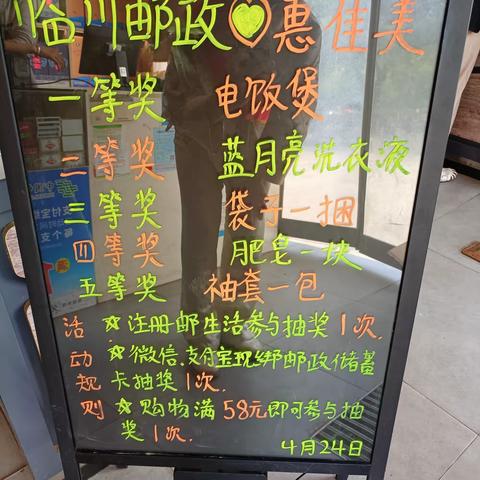 临川邮政 惠佳美
一等奖 电饭煲
二等奖 蓝月亮洗衣液
三等奖 袋子一捆
四等奖 肥皂一块
五等奖 袖套一包
活动规则
☆注册邮生活参与抽奖1次.
☆微信.支付宝现绑邮政储蓄
卡抽奖1次.
☆购物满58元即可参与抽
奖1次.
4月24日